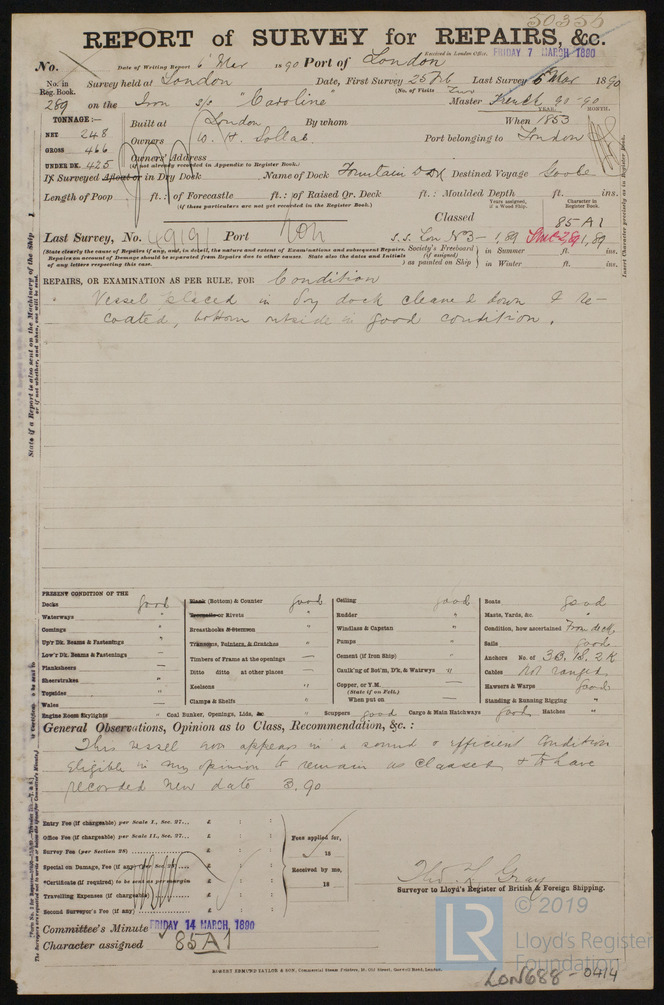 50355
REPORT of SURVEY for REPAIRS, &c.
No. Date of Writing Report 6 Mar 1890 Port of London Received in London Office, FRIDAY 7 MARCH 1890
No. in Reg. Book. Survey held at London Date, First Survey 25 Feb Last Survey 5 Mar 1890
(No. of Visits Two
289 on the Iron s/s "Caroline" Master French 90-90
YEAR. MONTH.
TONNAGE:— Built at London By whom When 1853
NET 248 Owners W. H. Port belonging to London
GROSS 466 Owners' Address
UNDER DK. 425 (if not already recorded in Appendix to Register Book.)
If Surveyed Afloat or in Dry Dock Name of Dock Fountain D Dk Destined Voyage Goole
Length of Poop ft.: of Forecastle ft.: of Raised Qr. Deck ft.: Moulded Depth ft. ins.
(if these particulars are not yet recorded in the Register Book.)
Years assigned, if a Wood Ship. Character in Register Book.
Classed 85 A1
Last Survey, No. 49191 Port Lon S.S. Lon No 3 - 1,89 1,89
(State clearly the cause of Repairs if any, and, in detail, the nature and extent of Examinations and subsequent Repairs.
Repairs on account of Damage should be separated from Repairs due to other causes. State also the Dates and Initials
of any letters respecting this case.)
Society's Freeboard (if assigned) as painted on Ship in Summer ft. ins.
in Winter ft. ins.
Insert Character precisely as in Register Book.
REPAIRS, OR EXAMINATION AS PER RULE, FOR Condition
Vessel placed in dry dock cleaned down & re-
coated, bottom outside in good condition.
State if a Report is also sent on the Machinery of the Ship
or if not whether, and when, one will be sent.
PRESENT CONDITION OF THE
Decks good
Waterways "
Comings "
Up'r Dk. Beams & Fastenings "
Low'r Dk. Beams & Fastenings —
Planksheers —
Sheerstrakes "
Topsides "
Wales —
Engine Room Skylights "
Plank (Bottom) & Counter good
Treenails or Rivets "
Breasthooks & Sternson "
Transoms, Pointers, & Crutches "
Timbers of Frame at the openings —
Ditto ditto at other places —
Keelsons "
Clamps & Shelfs "
Coal Bunker, Openings, Lids, &c "
Ceiling good
Rudder "
Windlass & Capstan "
Pumps "
Cement (if Iron Ship) "
Caulk'ng of Bot'm, D'k, & Waterwys "
Copper, or Y.M. —
(State if on Felt.)
When put on —
Scuppers good Cargo & Main Hatchways good Hatches "
Boats good
Masts, Yards, &c. "
Condition, how ascertained From deck
Sails good
Anchors No. of 3B. 1S. 2K
Cables not ranged
Hawsers & Warps good
Standing & Running Rigging "
General Observations, Opinion as to Class, Recommendation, &c. :
This vessel now appears in a sound & efficient condition
eligible in my opinion to remain as classed & to have
recorded new date 3.90
Entry Fee (if chargeable) per Scale I., Sec. 27... £ : :
Office Fee (if chargeable) per Scale II., Sec. 27... £ : :
Survey Fee (per Section 28) £ : :
Special on Damage, Fee (if any) per Sec. 28 £ : :
*Certificate (if required) to be sent as per margin £ : :
Travelling Expenses (if chargeable) £ : :
Second Surveyor's Fee (if any) £ : :
Fees applied for, 18
Received by me, 18
Thos. Gray
Surveyor to Lloyd's Register of British & Foreign Shipping.
Committee's Minute FRIDAY 14 MARCH, 1890
Character assigned 85 A1
ROBERT EDMUND TAYLOR & SON, Commercial Steam Printers, 19, Old Street, Goswell Road, London.
LR
© 2019
Lloyd's Register
Foundation
LON688-0414